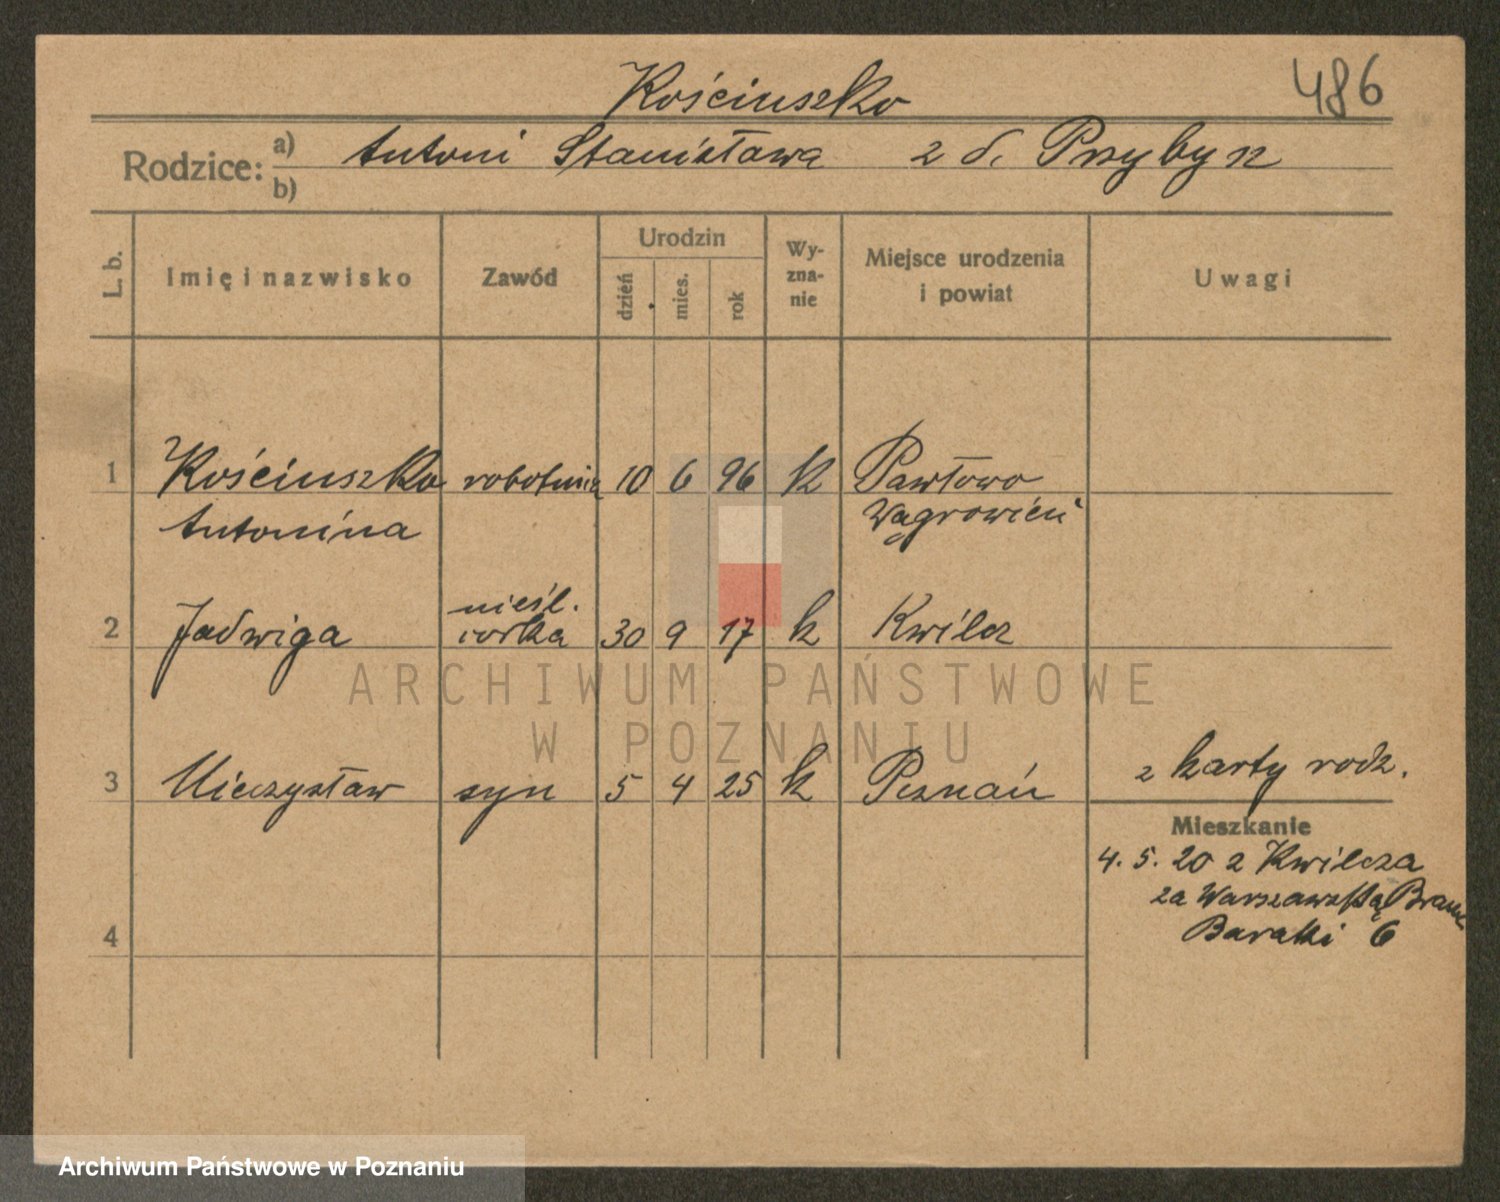 Kościuszko
486
Rodzice: a) Antoni Stanisława z d. Przybysz
b)
L. b. Imię i nazwisko Zawód Urodzin dzień mies. rok Wy-zna-nie Miejsce urodzenia i powiat Uwagi
1 Kościuszko robotnica 10 6 96 k Pawłowo
Antonina Wągrowiec
nieśl.
2 Jadwiga córka 30 9 17 k Kwilcz
3 Mieczysław syn 5 4 25 k Poznań z karty rodz.
Mieszkanie
4. 5. 20 z Kwilcza
za Warszawską Bramą
4 Baraki 6
ARCHIWUM PAŃSTWOWE
W POZNANIU
Archiwum Państwowe w Poznaniu